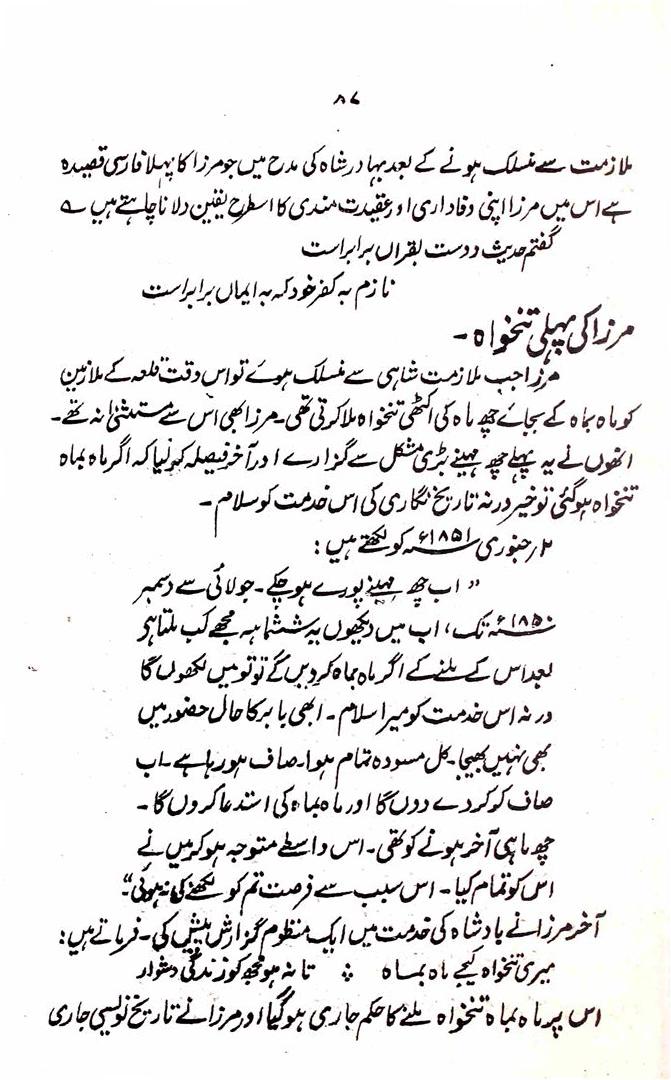 ۸۷
ملازمت سے منسلک ہونے کے بعد بہادر شاہ کی مدح میں جو مرزا کا پہلا فارسی قصیدہ
ہے اس میں مرزا اپنی وفاداری اور عقیدت مندی کا اسطرح یقین دلانا چاہتے ہیں ؎
گفتم حدیث دوست بقرآں برابر است
نازم بہ کفر خود کہ بہ ایماں برابر است
مرزا کی پہلی تنخواہ ۔
مرزا جب ملازمت شاہی سے منسلک ہوئے تو اس وقت قلعہ کے ملازمین
کو ماہ بماہ کے بجائے چھ ماہ کی اکٹھی تنخواہ ملا کرتی تھی۔ مرزا بھی اس سے مستثنیٰ نہ تھے۔
انھوں نے یہ پہلے چھ مہینے بڑی مشکل سے گزارے اور آخر فیصلہ کر لیا کہ اگر ماہ بماہ
تنخواہ ہو گئی تو خیر ورنہ تاریخ نگاری کی اس خدمت کو سلام ۔
۲؍ جنوری ۱۸۵۱ء کو لکھتے ہیں :
" اب چھ مہینے پورے ہو چکے ۔ جولائی سے دسمبر
۱۸۵۰ء تک، اب میں دیکھوں یہ ششماہہ مجھے کب ملتا ہی
بعد اس کے ملنے کے اگر ماہ بماہ کر دیں گے تو تو میں لکھوں گا
ورنہ اس خدمت کو میرا سلام ۔ ابھی بابر کا حال حضور میں
بھی نہیں بھیجا ۔ کل مسودہ تمام ہوا۔ صاف ہو رہا ہے ۔ اب
صاف کو کر دے دوں گا اور ماہ بماہ کی استدعا کروں گا ۔
چھ ماہی آخر ہونے کو تھی ۔ اس واسطے متوجہ ہو کر میں نے
اس کو تمام کیا ۔ اس سبب سے فرصت تم کو لکھنے کی نہ ہوئی"۔
آخر مرزا نے بادشاہ کی خدمت میں ایک منظوم گزارش پیش کی ۔ فرماتے ہیں :
میری تنخواہ کیجے ماہ بماہ ؞ تا نہ ہو مجھ کو زندگی دشوار
اس پر ماہ بماہ تنخواہ ملنے کا حکم جاری ہو گیا اور مرزا نے تاریخ نویسی جاری